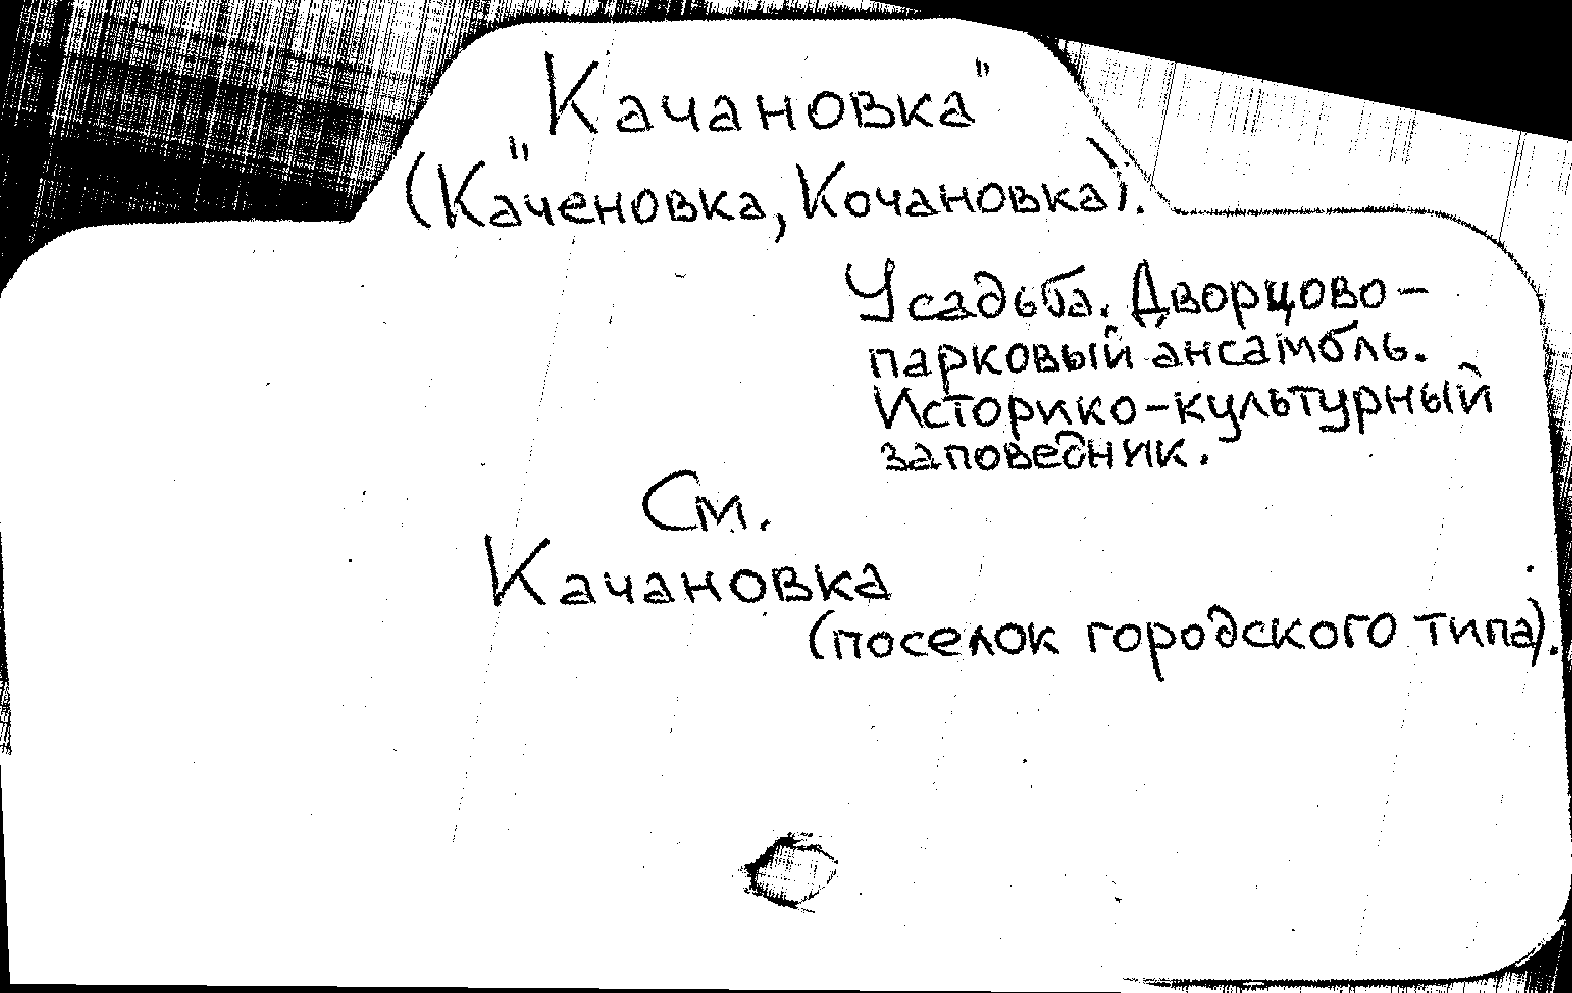 "Качановка"
(Каченовка, Кочановка).
Усадьба. Дворцово-
парковый ансамбль.
Историко-культурный
заповедник.
См.
Качановка
(поселок городского типа).